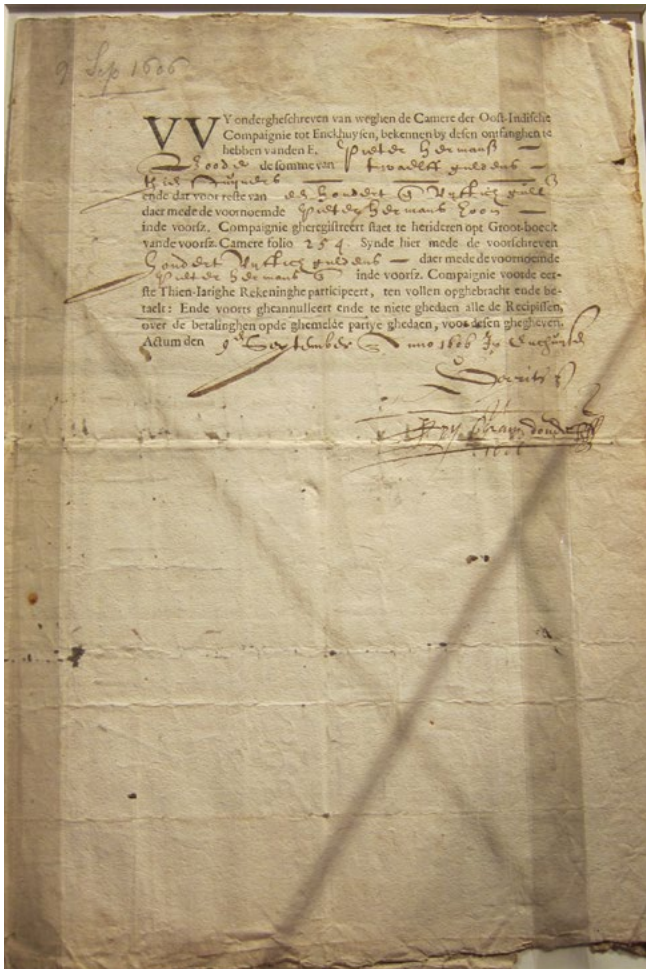 9 Sep 1606
VVY ondergheschreven van weghen de Camere der Oost-Indische
Compaignie tot Enckhuysen, bekennen by desen ontfanghen te
hebben vanden E. Pieter hermansz
de somme van twaelff guldens
ende dat voor reste van hondert
daer mede de voornoemde Pieter hermans
inde voorsz. Compaignie gheregistreert staet te herideren opt Groot-boeck
vande voorsz. Camere folio 254. Synde hier mede de voorschreven
hondert guldens daer mede de voornoemde
Pieter hermans inde voorsz. Compaignie voor de eer-
ste Thien-Iarighe Rekeninghe participeert, ten vollen opghebracht ende be-
taelt: Ende voorts gheannulleert ende te niete ghedaen alle de Recipissen,
over de betalinghen opde ghemelde partye ghedaen, voor desen ghegheven.
Actum den 9 September Anno 1606
Gerritsz